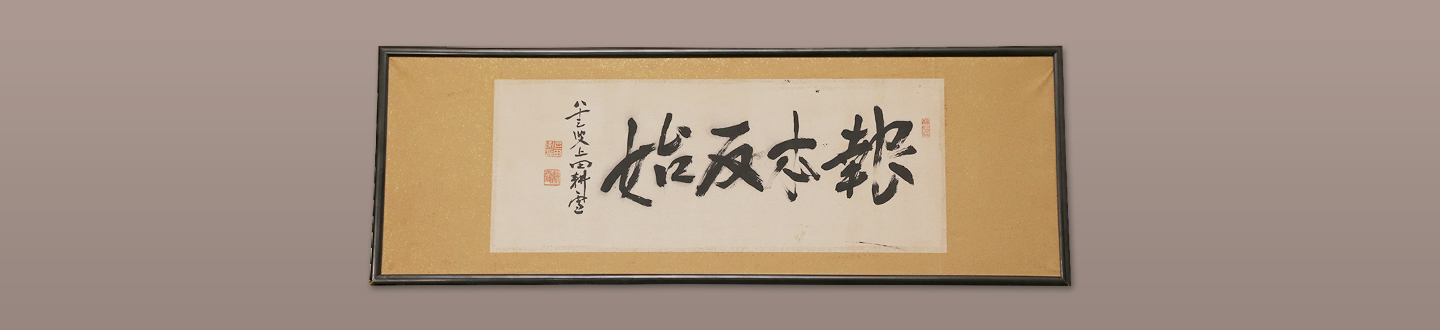 報本反始
八十三叟上田耕